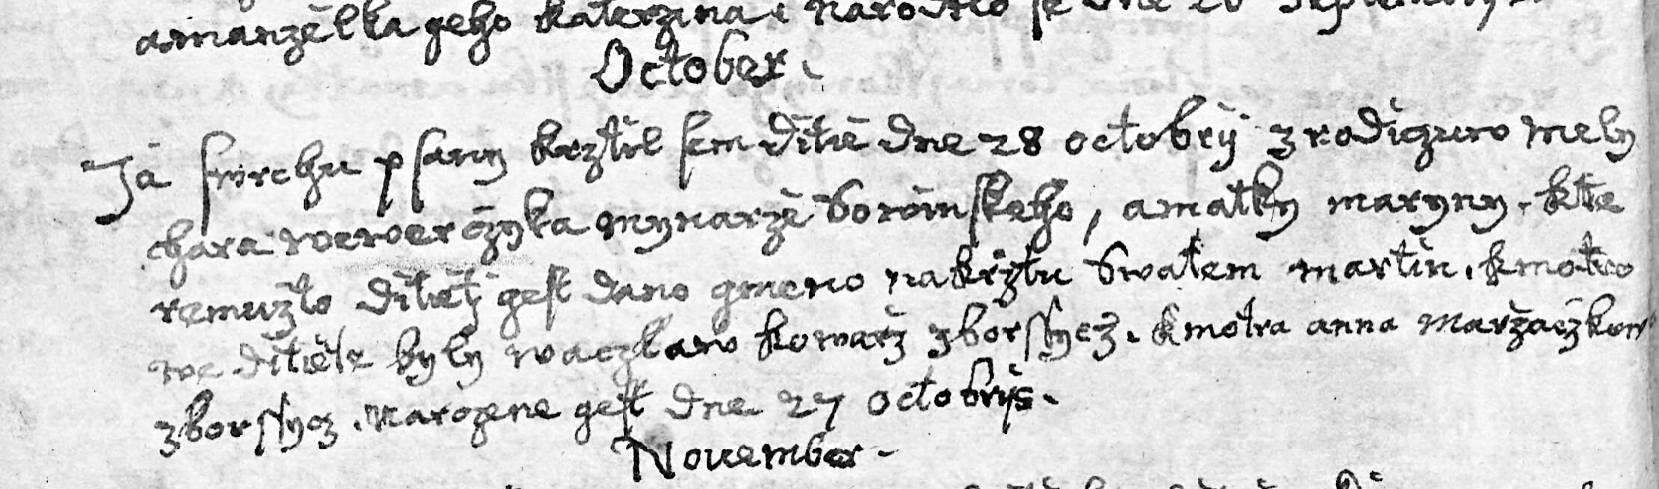 amanzelka geho katerzina, narodilo se dne 26 Septembris
October.
Já swrchu psany krztil sem ditie dne 28 octobrij z rodiczuw Mely
chara wewerczyka mynarze borowinskeho, a matky maryny. kte
remuzto ditieti gest dano gmeno na krztu Swatem martin. kmotro
we ditiete byly waczlaw kowarz z borssycz. kmotra anna marzaczkow
z borssycz. Narozene gest dne 27 octobrijs.
November.